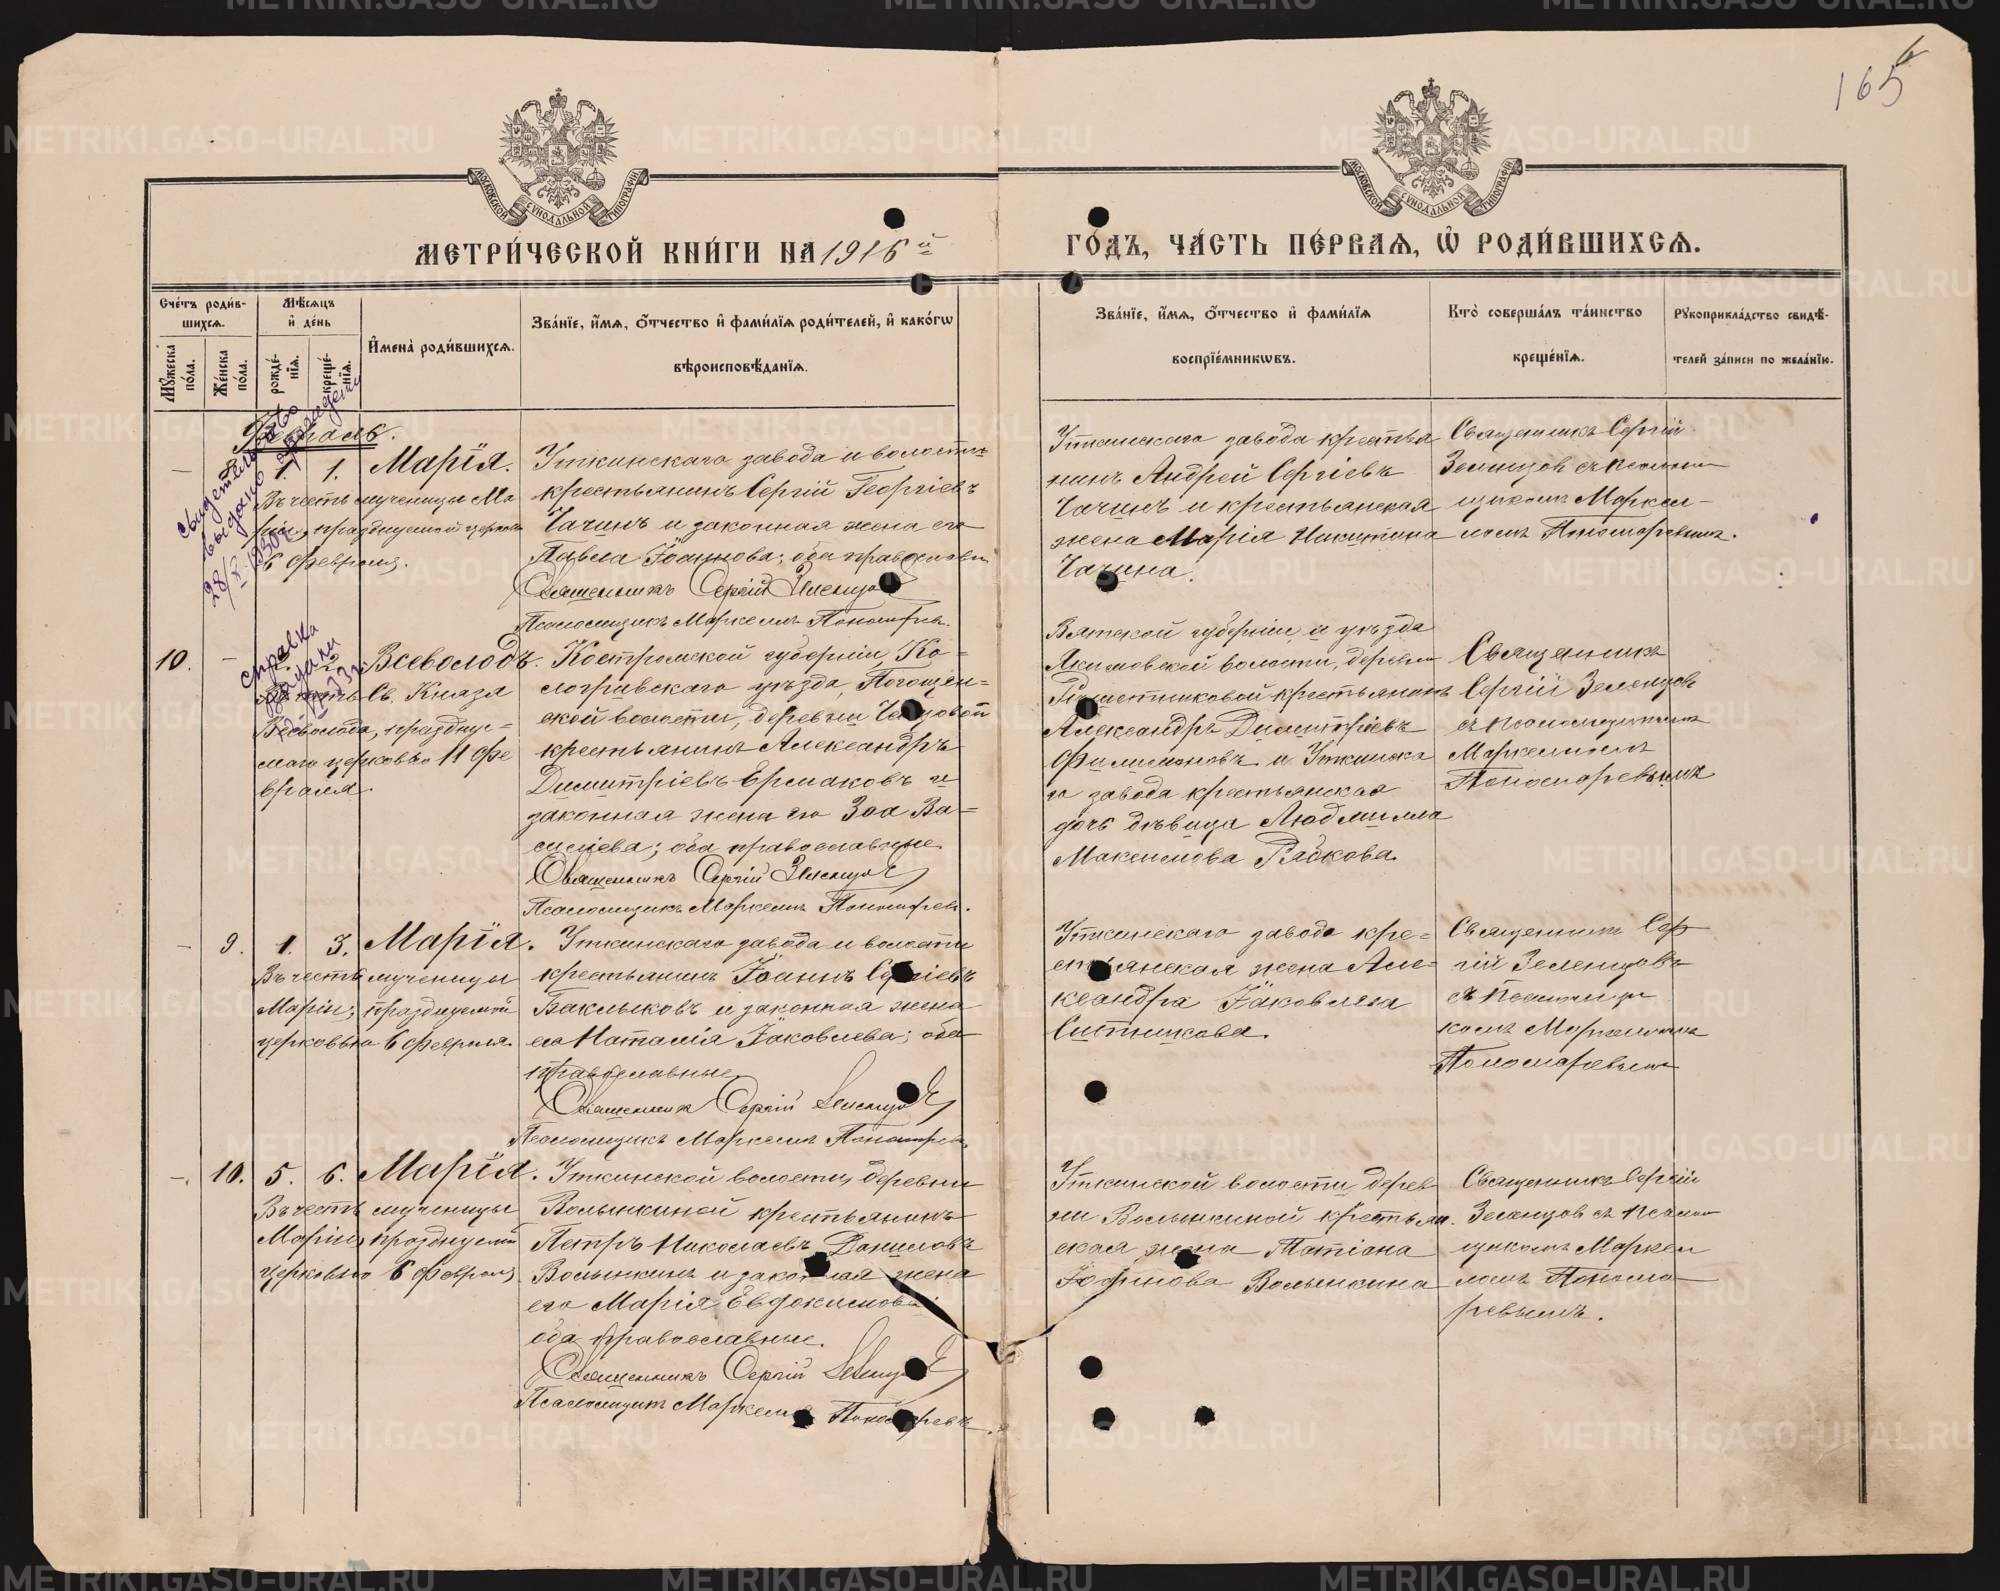 165
МЕТРИ́ЧЕСКОЙ КНИ́ГИ НА 1916 й
ГО́ДЪ, ЧА́СТЬ ПЕ́РВАѦ, Ѽ РОДИ́ВШИХСѦ.
МОСКОВСКОЙ СУНОДАЛЬНОЙ ТИПОГРАФІИ
МОСКОВСКОЙ СУНОДАЛЬНОЙ ТИПОГРАФІИ
Сче́тъ роди́в-
шихсѧ.
Мѣ́сѧцъ
и҆ де́нь
Мꙋ́жеска по́ла.
Же́нска по́ла.
рожде́-
нїѧ.
креще́-
нїѧ.
И҆мена̀ роди́вшихсѧ.
Зва́нїе, и҆́мѧ, ѻ҆́тчество и҆ фами́лїѧ роди́телей, и҆ како́гѡ
вѣроисповѣ́данїѧ.
Зва́нїе, и҆́мѧ, ѻ҆́тчество и҆ фами́лїѧ
воспрїе́мникѡвъ.
Кто̀ соверша́лъ та́инство
креще́нїѧ.
Рꙋкоприкла́дство свидѣ́-
телей за́писи по жела́нїю.
Февраль.
свидетельство
выдано
28/X 1930 г.
1. 1. Марія.
Въ честь мученицы Ма
ріи, празднуемой церковью
6 февраля.
Уткинскаго завода и волости
крестьянинъ Сергій Георгіевъ
Чачинъ и законная жена его
Павла Іоаннова; оба православн.
Священникъ Сергій Зеленцовъ
Псаломщикъ Маркеллъ Пономаревъ.
Уткинскаго завода крестья
нинъ Андрей Сергіевъ
Чачинъ и крестьянская
жена Марія Никитина
Чачина.
Священникъ Сергій
Зеленцовъ съ псалом
щикомъ Маркел-
ломъ Пономаревымъ.
справка
выдана
10. - 2. Всеволодъ.
Въ честь Св. Князя
Всеволода, праздну-
емаго церковью 11 фе
враля.
Костромской губерніи, Ко-
логривскаго уѣзда,
ской волости, деревни
крестьянинъ Александръ
Димитріевъ Ермаковъ и
законная жена его Зоя Ва-
сильева; оба православные.
Священникъ Сергій Зеленцовъ
Псаломщикъ Маркеллъ Пономаревъ.
Вятской губерніи и уѣзда
Якимовской волости, деревни
крестьянинъ
Александръ Димитріевъ
Филимоновъ и Уткинска
го завода крестьянская
дочь дѣвица Людмилла
Максимова Рябкова.
Священникъ
Сергій Зеленцовъ
съ псаломщикомъ
Маркелломъ
Пономаревымъ
- 9. 1. 3. Марія.
Въ честь мученицы
Маріи, празднуемой
церковью 6 февраля.
Уткинскаго завода и волости
крестьянинъ Іоаннъ Сергіевъ
Баклыковъ и законная жена
его Наталія Іаковлева; оба
православные.
Священникъ Сергій Зеленцовъ
Псаломщикъ Маркеллъ Пономаревъ
Уткинскаго завода кре-
стьянская жена Але-
ксандра Іаковлева
Ситникова.
Священникъ Сер
гій Зеленцовъ
съ псаломщи
комъ Маркелломъ
Пономаревымъ
- 10. 5. 6. Марія.
Въ честь мученицы
Маріи, празднуемой
церковью 6 февраля.
Уткинской волости, деревни
Волынкиной крестьянинъ
Петръ Николаевъ Даниловъ
Волынкинъ и законная жена
его Марія Евдокимова
оба православные.
Священникъ Сергій Зеленцовъ
Псаломщикъ Маркеллъ Пономаревъ
Уткинской волости, дерев
ни Волынкиной крестьян.
ская жена Татіана
Волынкина
Священникъ Сергій
Зеленцовъ съ псалом
щикомъ Маркел
ломъ Понома
ревымъ.
METRIKI.GASO-URAL.RU